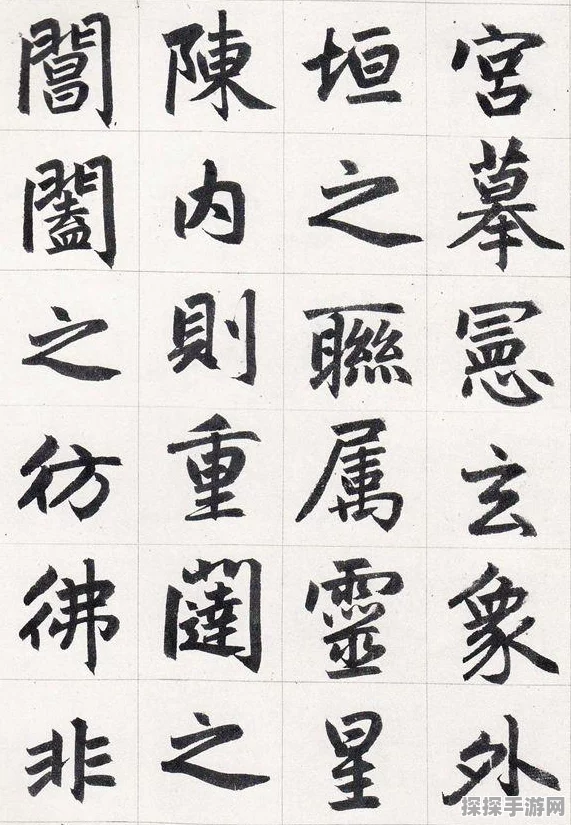 宮摹憲玄象外
垣之聯属靈星
陳内則重闥之
閶闔之彷彿非
探探手游网